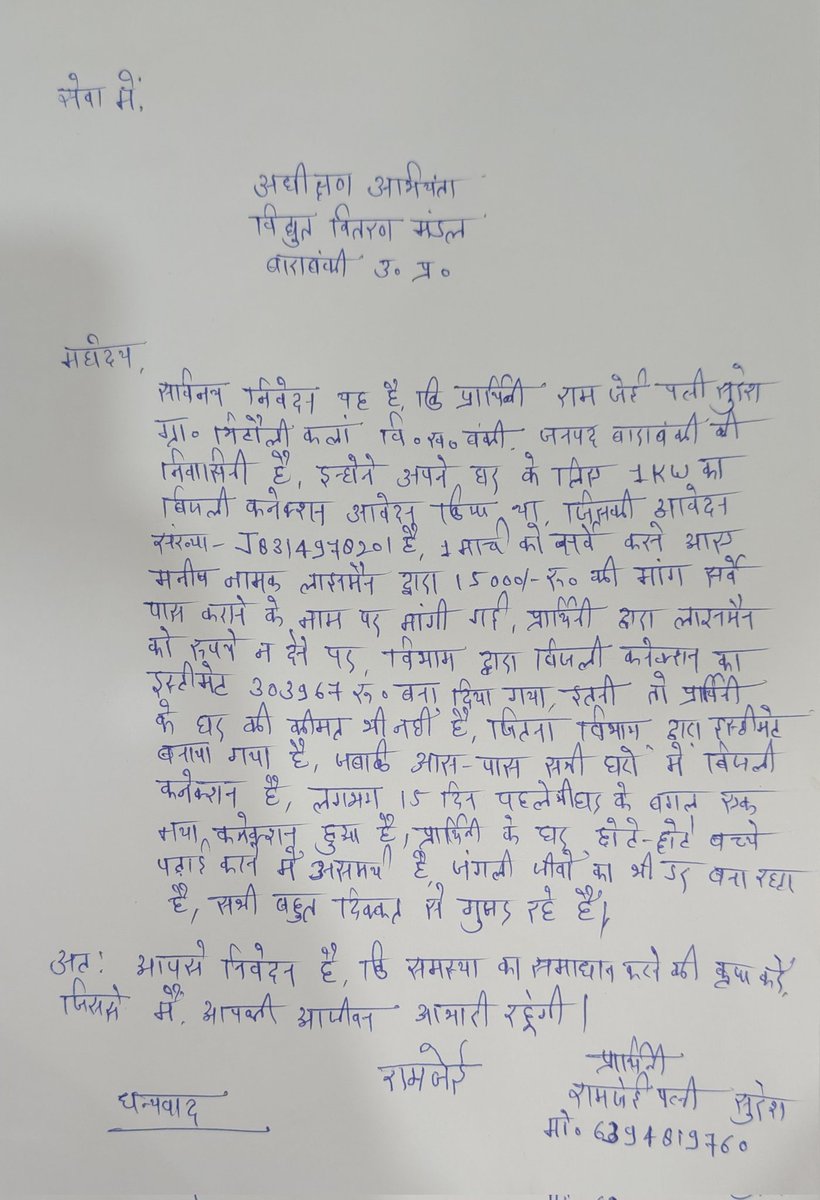 सेवा में,
अधीक्षण अभियंता
विद्युत वितरण मंडल
बाराबंकी उ० प्र०
महोदय,
सविनय निवेदन यह है, कि प्रार्थिनी राम जेई पत्नी सुरेश
ग्रा० भिटौली कलां वि० ख० बंकी, जनपद बाराबंकी की
निवासिनी है, इन्होने अपने घर के लिए 1KW का
बिजली कनेक्शन आवेदन किया था, जिसकी आवेदन
संख्या- J8314978201 है, 1 मार्च को सर्वे करने आए
मनीष नामक लाइनमैन द्वारा 15000/- रू० की मांग सर्वे
पास कराने के नाम पर मांगी गई, प्रार्थिनी द्वारा लाइनमैन
को रुपये न देने पर, विभाग द्वारा बिजली कनेक्शन का
इस्टीमेट 303967 रू० बना दिया गया, इतनी तो प्रार्थिनी
के घर की कीमत भी नहीं है, जितना विभाग द्वारा इस्टीमेट
बनाया गया है, जबकि आस-पास सभी घरो में बिजली
कनेक्शन है, लगभग 15 दिन पहले भी घर के बगल एक
नया कनेक्शन हुआ है, प्रार्थिनी के घर छोटे-छोटे बच्चे
पढ़ाई करने में असमर्थ है, जंगली जीवो का भी डर बना रहता
है, सभी बहुत दिक्कत से गुजर रहे हैं।
अतः आपसे निवेदन है, कि समस्या का समाधान करने की कृपा करें,
जिससे मैं, आपकी आजीवन आभारी रहूंगी।
रामजेई
प्रार्थिनी
रामजेई पत्नी सुरेश
धन्यवाद
मो० 6394819760